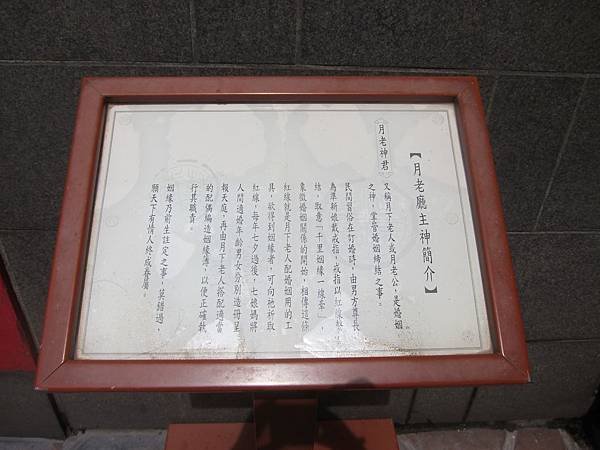 【月老廳主神簡介】
月老神君
又稱月下老人或月老公，是婚姻
之神，掌管婚姻締結之事。
民間習俗在訂婚時，由男方尊長
為準新娘戴戒指，戒指以紅線
結，取意「千里姻緣一線牽」，
象徵婚姻關係的開始，相傳這條
紅線就是月下老人配婚姻用的工
具，欲得到姻緣者，可向祂祈取
紅線，每年七夕過後，七娘媽將
人間適婚年齡男女分別造冊呈
報天庭，再由月下老人搭配適當
的配偶編造姻緣簿，以便正確執
行其職責。
姻緣乃前生註定之事，莫錯過，
願天下有情人終成眷屬。